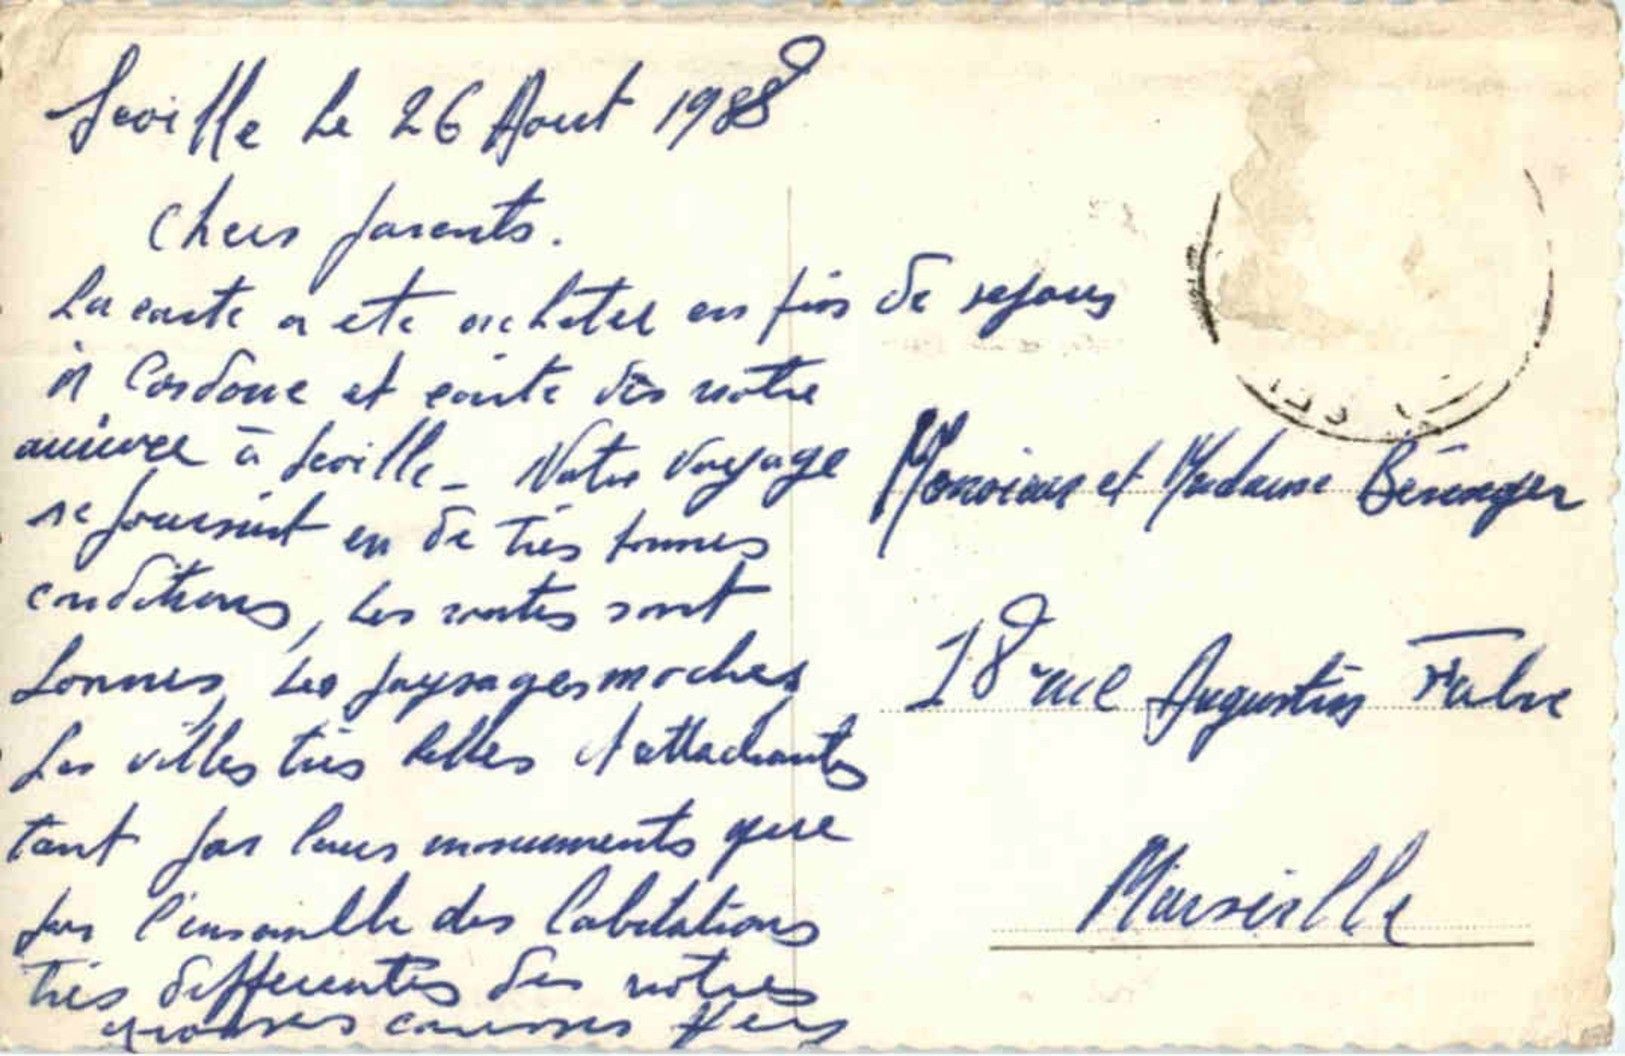 Seville le 26 Aout 1958
Chers parents.
La carte a ete acheter en fin de sejour
à Cordoue et écrite dès notre
arrivée à Seville - Notre voyage
se poursuit en de très bonnes
conditions, les routes sont
bonnes, les paysages moches,
les villes très belles et attachantes
tant par leurs monuments que
par l'ensemble des habitations
très differentes des notres
grosses caresses
Monsieur et Madame Bérenger
18 rue Augustin Fabre
Marseille